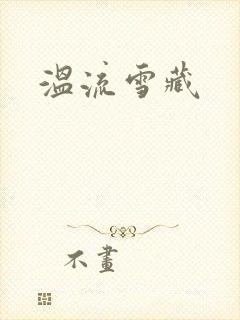 温流雪藏
不畫